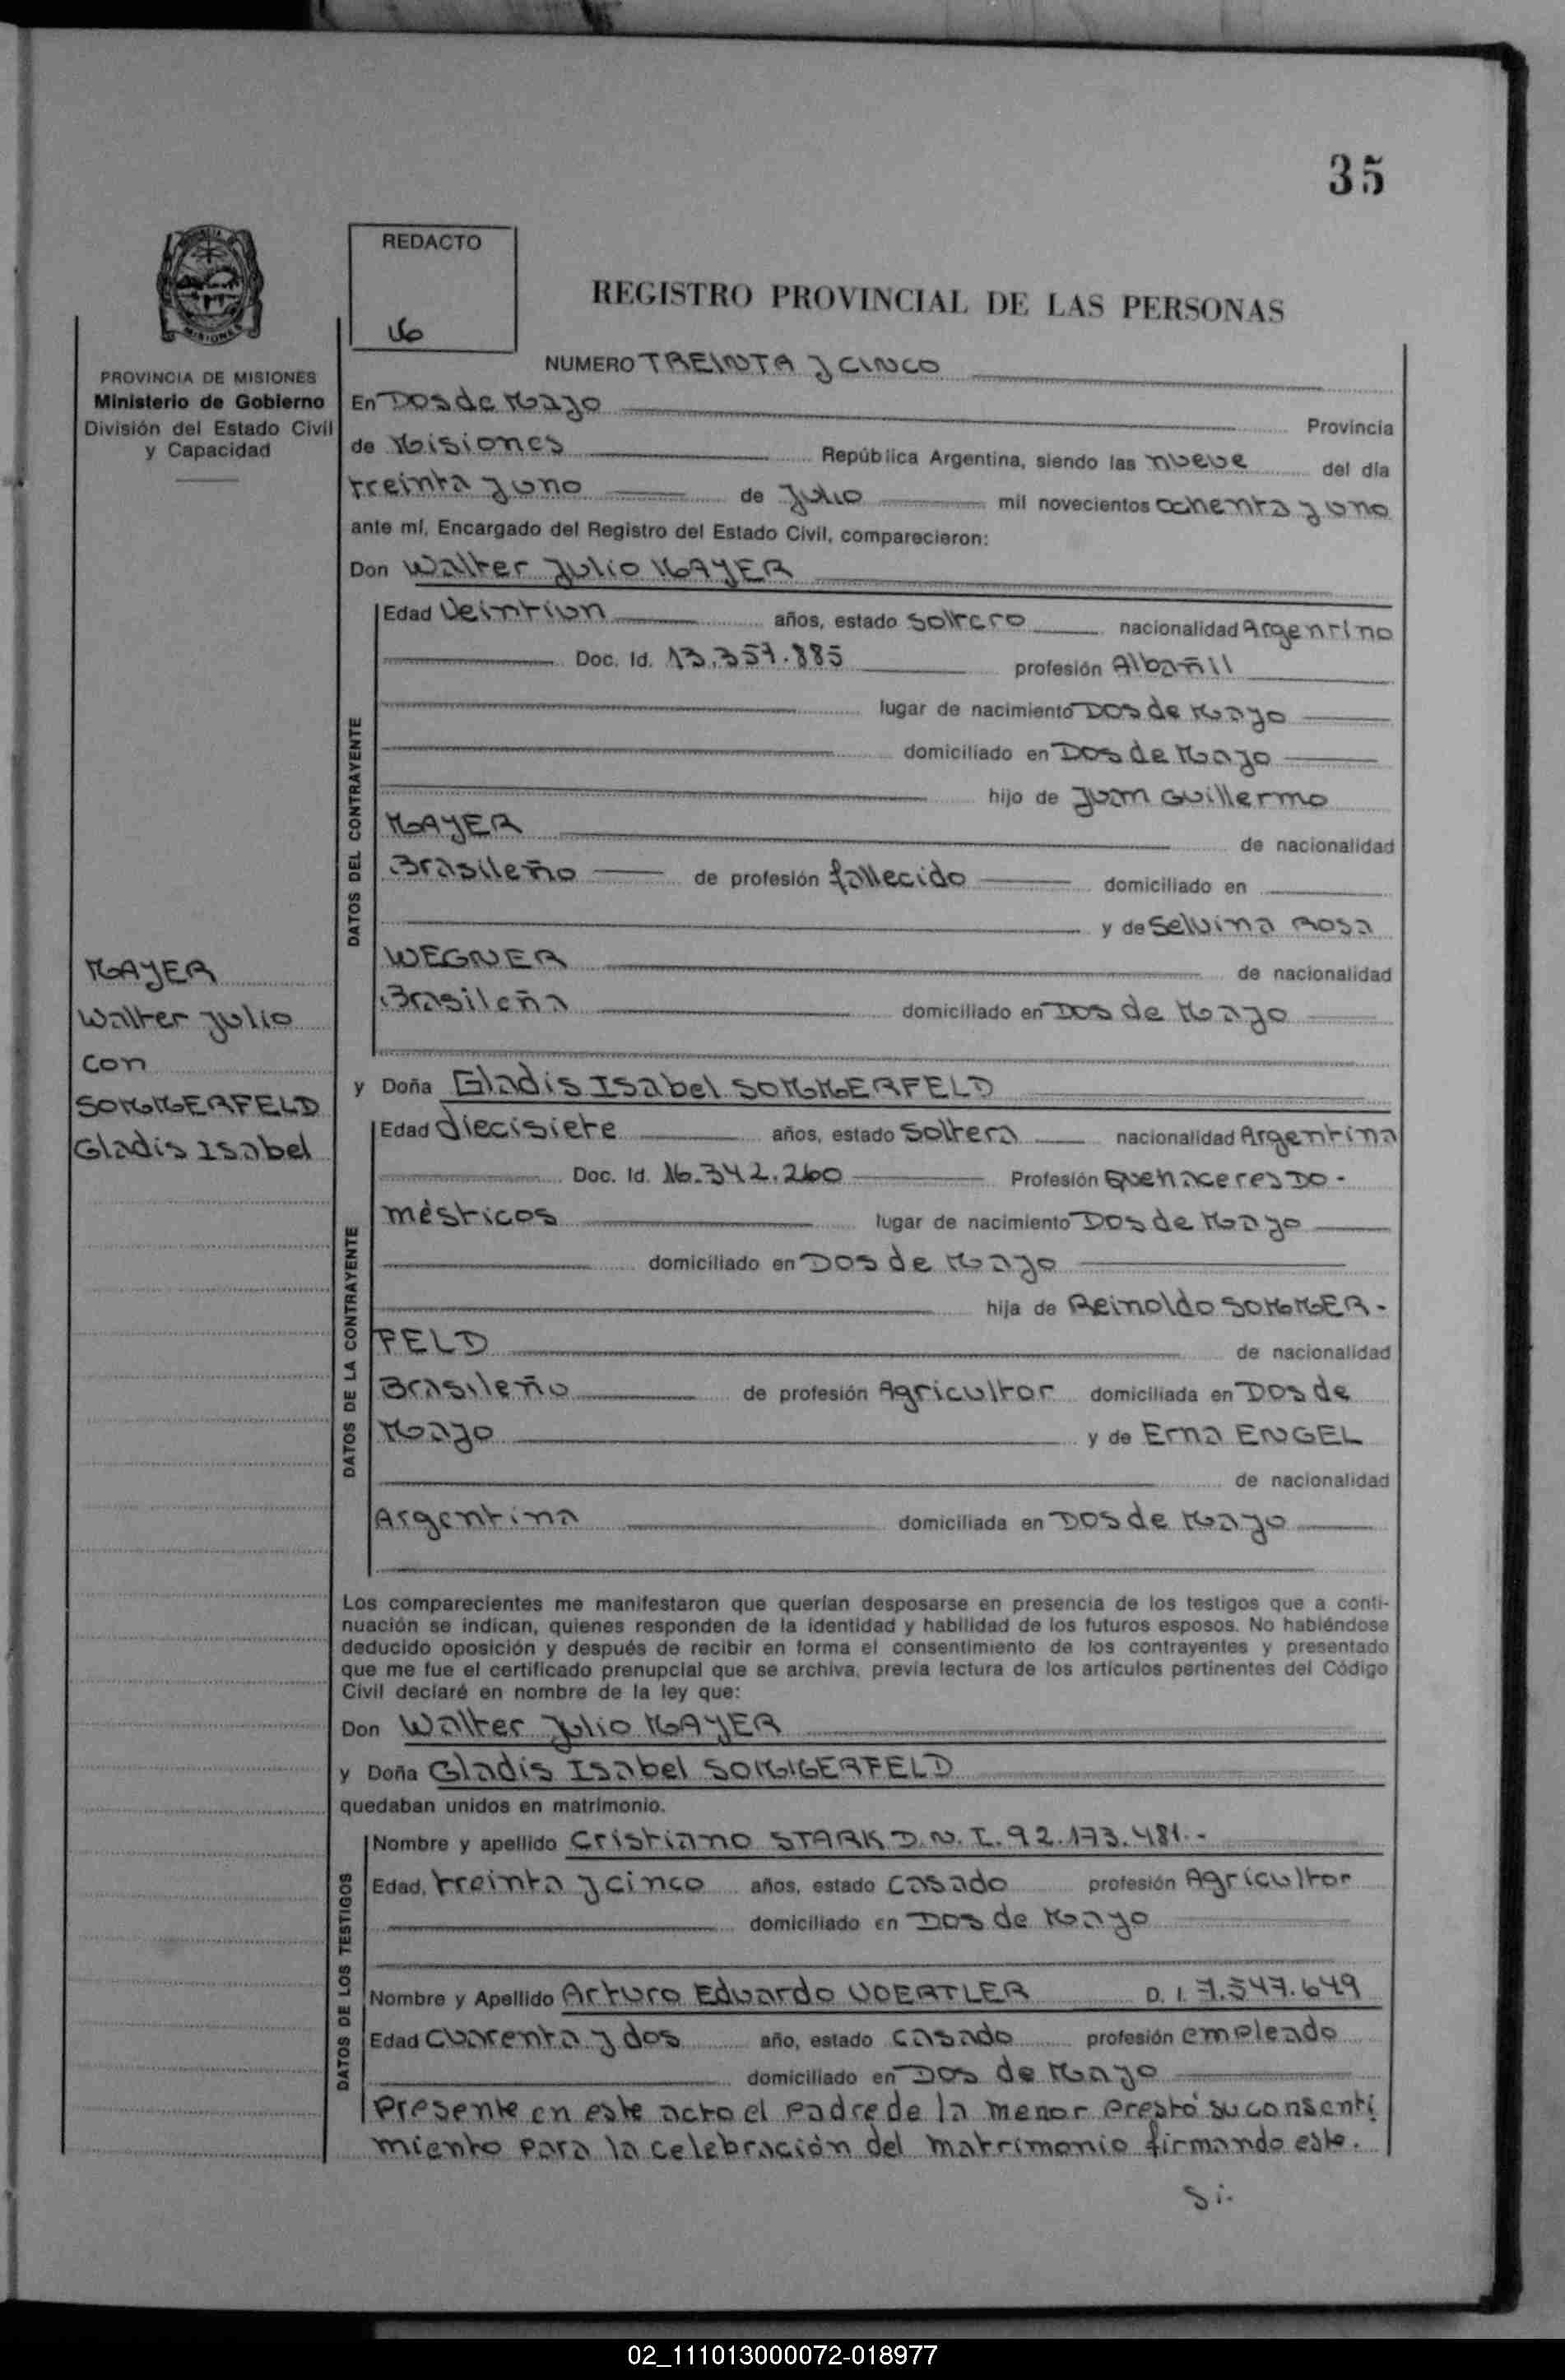 35
REDACTO
REGISTRO PROVINCIAL DE LAS PERSONAS
MISIONES
PROVINCIA DE MISIONES
Ministerio de Gobierno
División del Estado Civil
y Capacidad
NUMERO TREINTA y CINCO
En Dos de Mayo Provincia
de Misiones República Argentina, siendo las nueve del día
treinta y uno de Julio mil novecientos ochenta y uno
ante mí, Encargado del Registro del Estado Civil, comparecieron:
Don Walter Julio MAYER
DATOS DEL CONTRAYENTE
Edad Veintiun años, estado soltero nacionalidad Argentino
Doc. Id. 13.357.885 profesión Albañil
lugar de nacimiento Dos de Mayo
domiciliado en Dos de Mayo
hijo de Juan Guillermo
MAYER de nacionalidad
Brasileño de profesión fallecido domiciliado en
y de Selvina Rosa
WEGNER de nacionalidad
Brasileña domiciliado en Dos de Mayo
MAYER
Walter Julio
con
SOMMERFELD
Gladis Isabel
y Doña Gladis Isabel SOMMERFELD
DATOS DE LA CONTRAYENTE
Edad diecisiete años, estado soltera nacionalidad Argentina
Doc. Id. 16.342.260 Profesión Quehaceres Do-
mésticos lugar de nacimiento Dos de Mayo
domiciliado en Dos de Mayo
hija de Reinoldo SOMMER-
FELD de nacionalidad
Brasileño de profesión Agricultor domiciliada en Dos de
Mayo y de Erna ENGEL
de nacionalidad
Argentina domiciliada en Dos de Mayo
Los comparecientes me manifestaron que querían desposarse en presencia de los testigos que a conti-
nuación se indican, quienes responden de la identidad y habilidad de los futuros esposos. No habiéndose
deducido oposición y después de recibir en forma el consentimiento de los contrayentes y presentado
que me fue el certificado prenupcial que se archiva, previa lectura de los artículos pertinentes del Código
Civil declaré en nombre de la ley que:
Don Walter Julio MAYER
y Doña Gladis Isabel SOMMERFELD
quedaban unidos en matrimonio.
DATOS DE LOS TESTIGOS
Nombre y apellido Cristiano STARK D.N.I. 92.173.481.-
Edad, treinta y cinco años, estado casado profesión Agricultor
domiciliado en Dos de Mayo
Nombre y Apellido Arturo Eduardo VOERTLER D. I. 7.547.649
Edad Cuarenta y dos año, estado casado profesión empleado
domiciliado en Dos de Mayo
Presente en este acto el padre de la menor prestó su consenti
miento para la celebración del matrimonio firmando este.
Si.
02_111013000072-018977